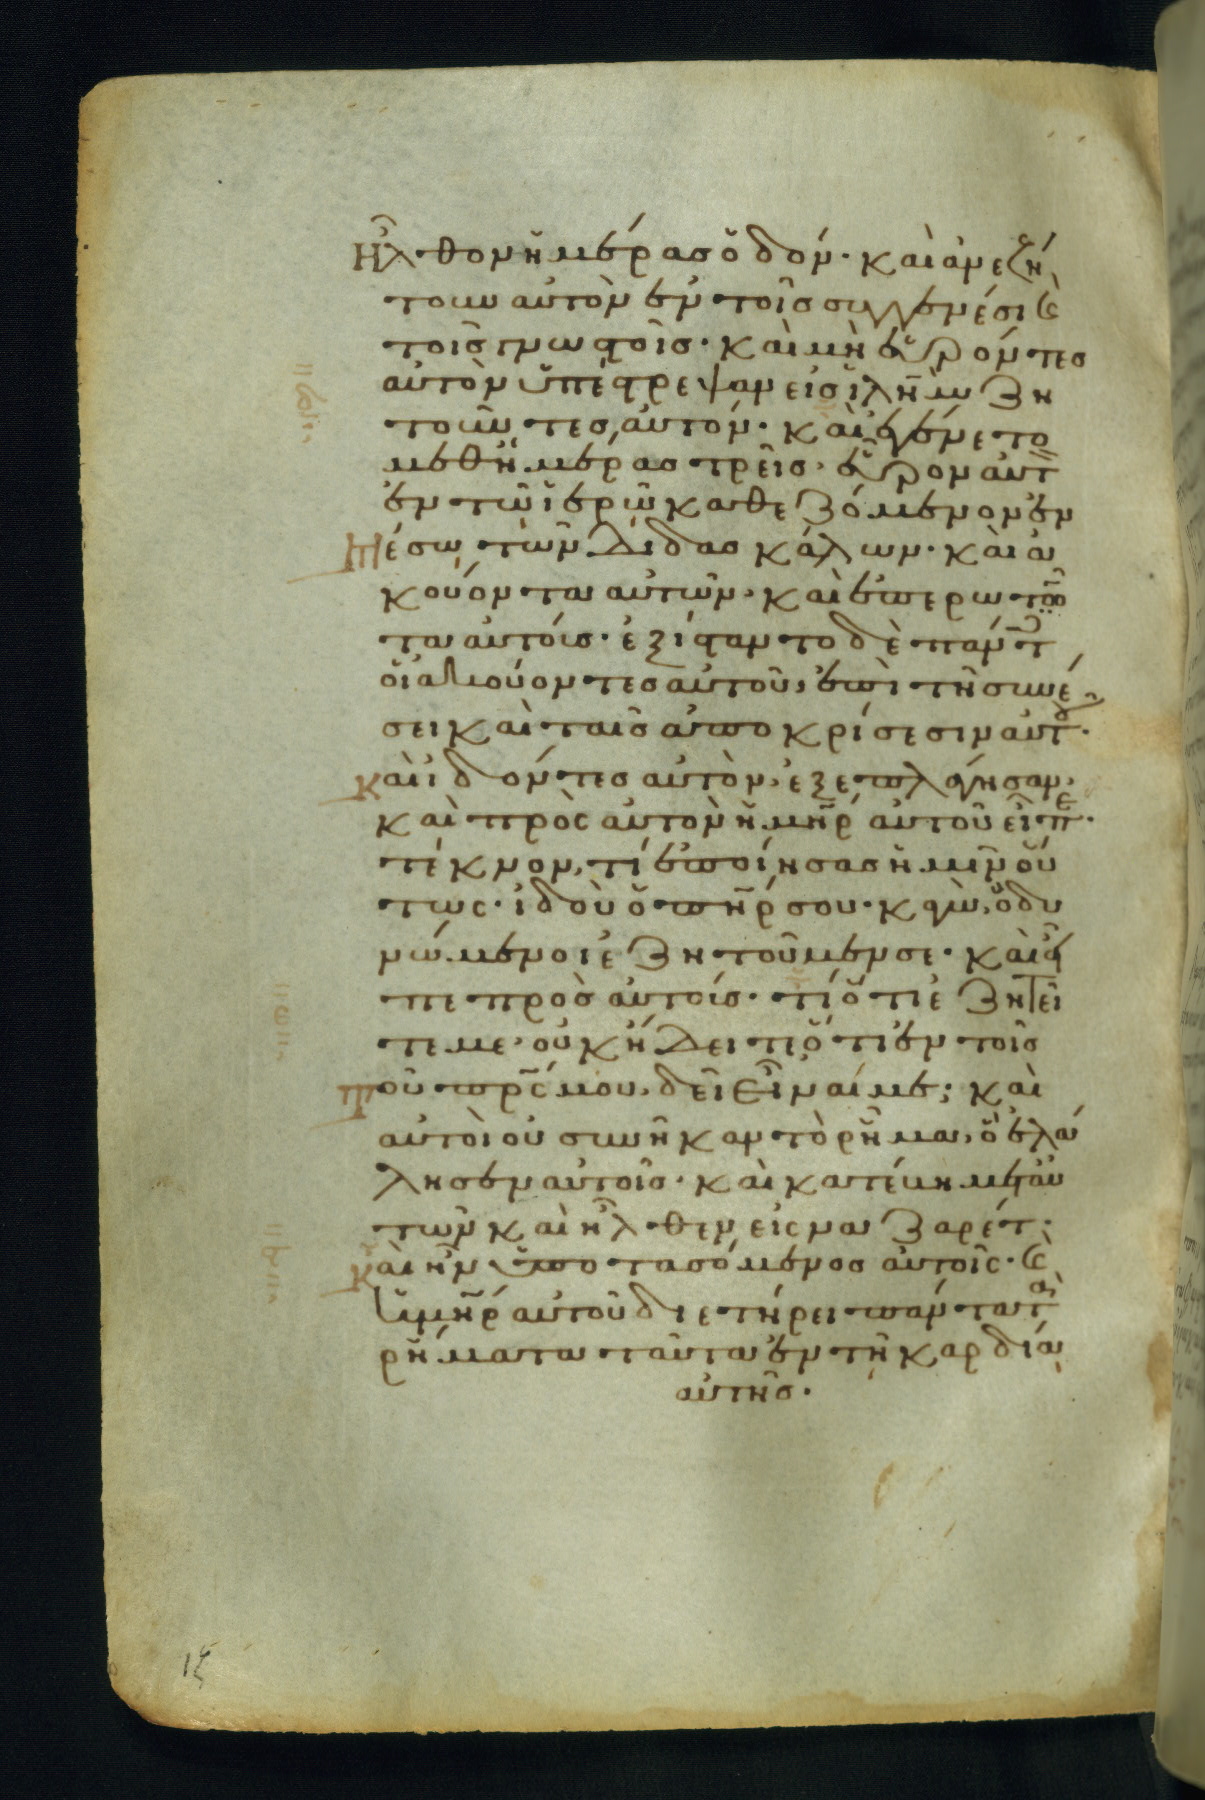 Ἦλθον ἡμέρας ὁδόν· καὶ ἀνεζή
τουν αὐτὸν ἐν τοῖς συγγενέσι ϗ
τοῖς γνωστοῖς· καὶ μὴ εὑρόντες
αὐτὸν ὑπέστρεψαν εἰς ἱλῆμ ζη
τοῦντες αὐτόν· καὶ ἐγένετο
μεθ ἡμέρας τρεῖς· εὗρον αὐτ
ἐν τῷ ἱερῷ καθεζόμενον ἐν
μέσῳ τῶν διδασκάλων· καὶ ἀ
κούοντα αὐτῶν· καὶ ἐπερωτῶν
τα αὐτούς· ἐξίσταντο δὲ πάντ
οἱ ἀκούοντες αὐτοῦ, ἐπὶ τῇ συνέ
σει καὶ ταῖς ἀποκρίσεσιν αὐτοῦ·
καὶ ἰδόντες αὐτὸν, ἐξεπλάγησαν,
καὶ πρὸς αὐτὸν ἡ μῆρ αὐτοῦ εἶπε·
τέκνον, τί ἐποίησας ἡμῖν οὕ
τως· ἰδοὺ ὁ πῆρ σου· κἀγὼ, ὀδυ
νώμενοι ἐζητοῦμεν σε· καὶ εἶ
πε πρὸς αὐτούς· τί ὅτι ἐζητεῖ
τε με· οὐκ ᾔδειτε ὅτι ἐν τοῖς
τοῦ πρς μου, δεῖ εἶναί με; καὶ
αὐτοὶ οὐ συνῆκαν τὸ ῥῆμα, ὃ ἐλά
λησεν αὐτοῖς· καὶ κατέβη μετ αὐ
τῶν καὶ ἦλθεν εἰς ναζαρέτ·
καὶ ἦν ὑποτασόμενος αὐτοῖς· ϗ
ἡ μῆρ αὐτοῦ διετήρει πάντα τὰ
ῥήματα ταῦτα ἐν τῇ καρδίᾳ
αὐτῆς·